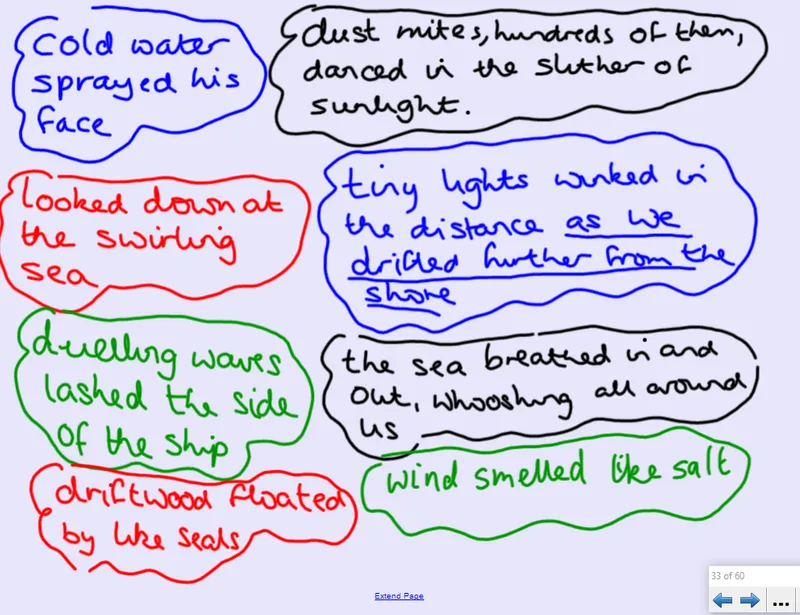 cold water
sprayed his
face
dust mites, hundreds of them,
danced in the slither of
sunlight.
looked down at
the swirling
sea
tiny lights winked in
the distance as we
drifted further from the
shore
duelling waves
lashed the side
of the ship
the sea breathed in and
out, whooshing all around
us
driftwood floated
by like seals
wind smelled like salt
33 of 60
Extend Page